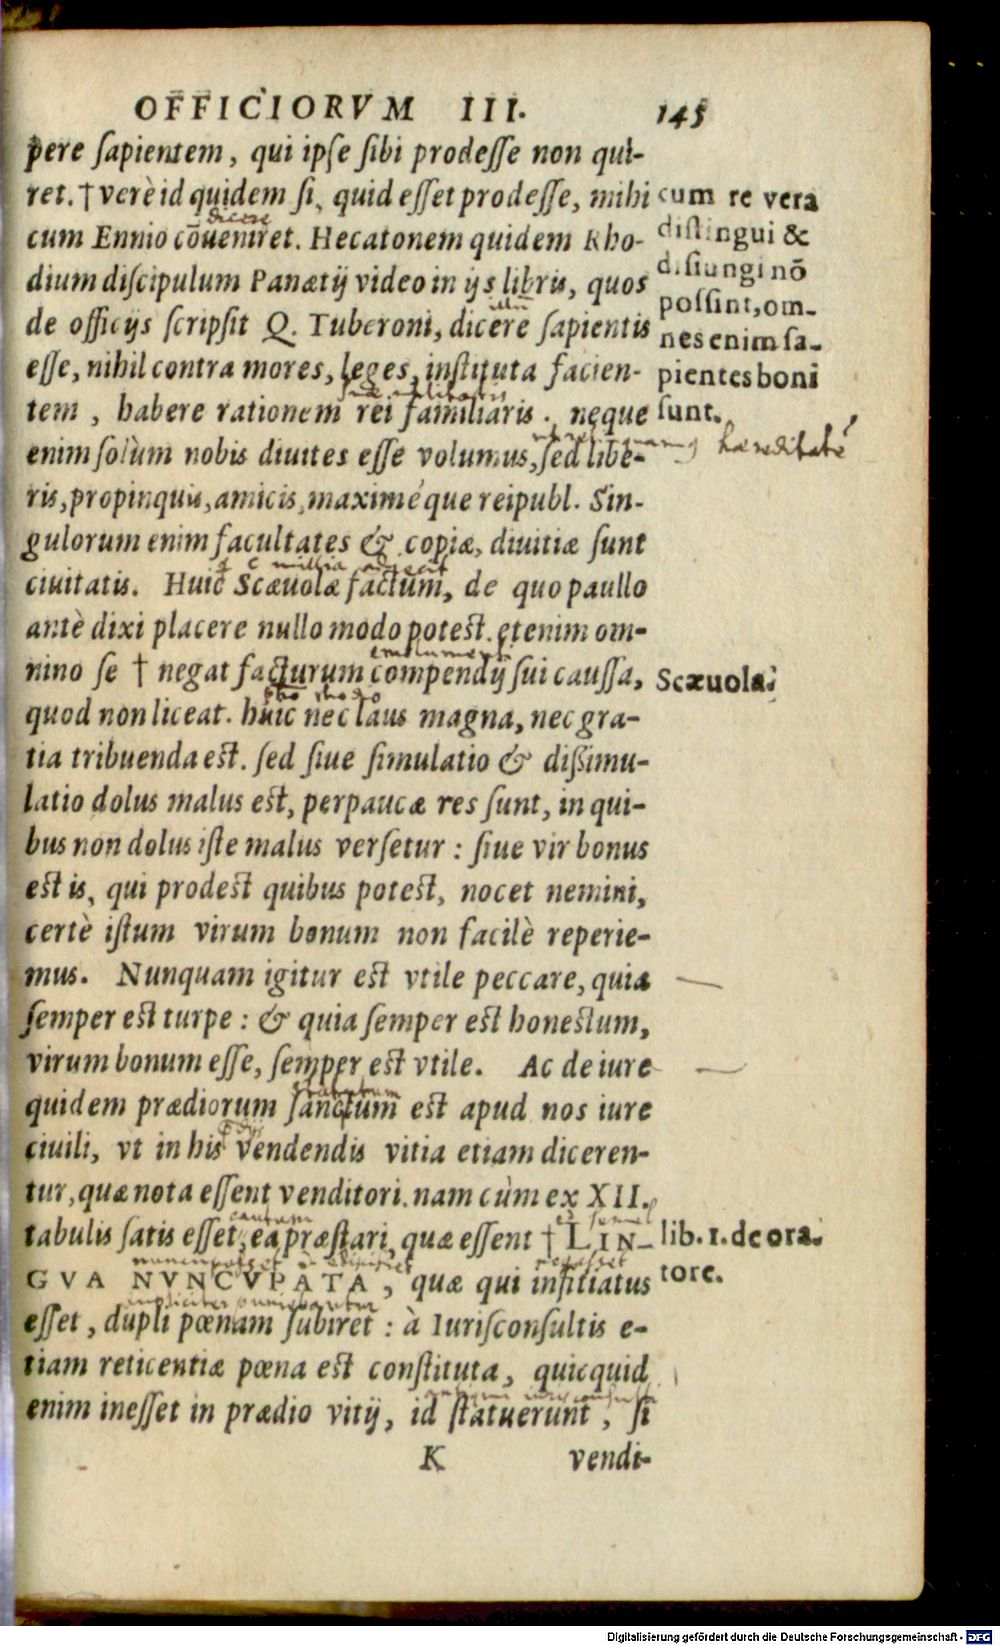 OFFICIORVM III. 145
pere sapientem, qui ipse sibi prodesse non qui-
ret. † verè id quidem si, quid esset prodesse, mihi
dicere
cum Ennio cōueniret. Hecatonem quidem Rho-
dium discipulum Panætij video in ijs libris, quos
de officijs scripsit Q. Tuberoni, dicere sapientis
esse, nihil contra mores, leges, instituta facien-
tem, habere rationem rei familiaris. neque
enim solùm nobis diuites esse volumus, sed libe-
ris, propinquis, amicis, maximéque reipubl. Sin-
gulorum enim facultates & copiæ, diuitiæ sunt
ciuitatis. Huic Scæuolæ factum, de quo paullo
antè dixi placere nullo modo potest. etenim om-
nino se † negat facturum compendij sui caussa,
quod non liceat. huic nec laus magna, nec gra-
tia tribuenda est. sed siue simulatio & dissimu-
latio dolus malus est, perpaucæ res sunt, in qui-
bus non dolus iste malus versetur: siue vir bonus
est is, qui prodest quibus potest, nocet nemini,
certè istum virum bonum non facilè reperie-
mus. Nunquam igitur est vtile peccare, quia
semper est turpe: & quia semper est honestum,
virum bonum esse, semper est vtile. Ac de iure
quidem prædiorum sanctum est apud nos iure
ciuili, vt in his vendendis vitia etiam diceren-
tur, quæ nota essent venditori. nam cùm ex XII.
tabulis satis esset, ea præstari, quæ essent † LIN-
GVA NVNCVPATA, quæ qui infitiatus
esset, dupli pœnam subiret: à Iurisconsultis e-
tiam reticentiæ pœna est constituta, quicquid
enim inesset in prædio vitij, id statuerunt, si
K vendi-
cum re vera
distingui &
disiungi nō
possint, om-
nes enim sa-
pientes boni
sunt.
hæreditatē
Scæuola.
lib. 1. de ora.
tore.
Digitalisierung gefördert durch die Deutsche Forschungsgemeinschaft - DFG